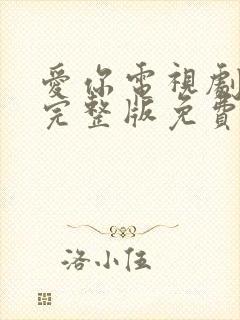 愛你電視劇
完整版免費
洛小伍